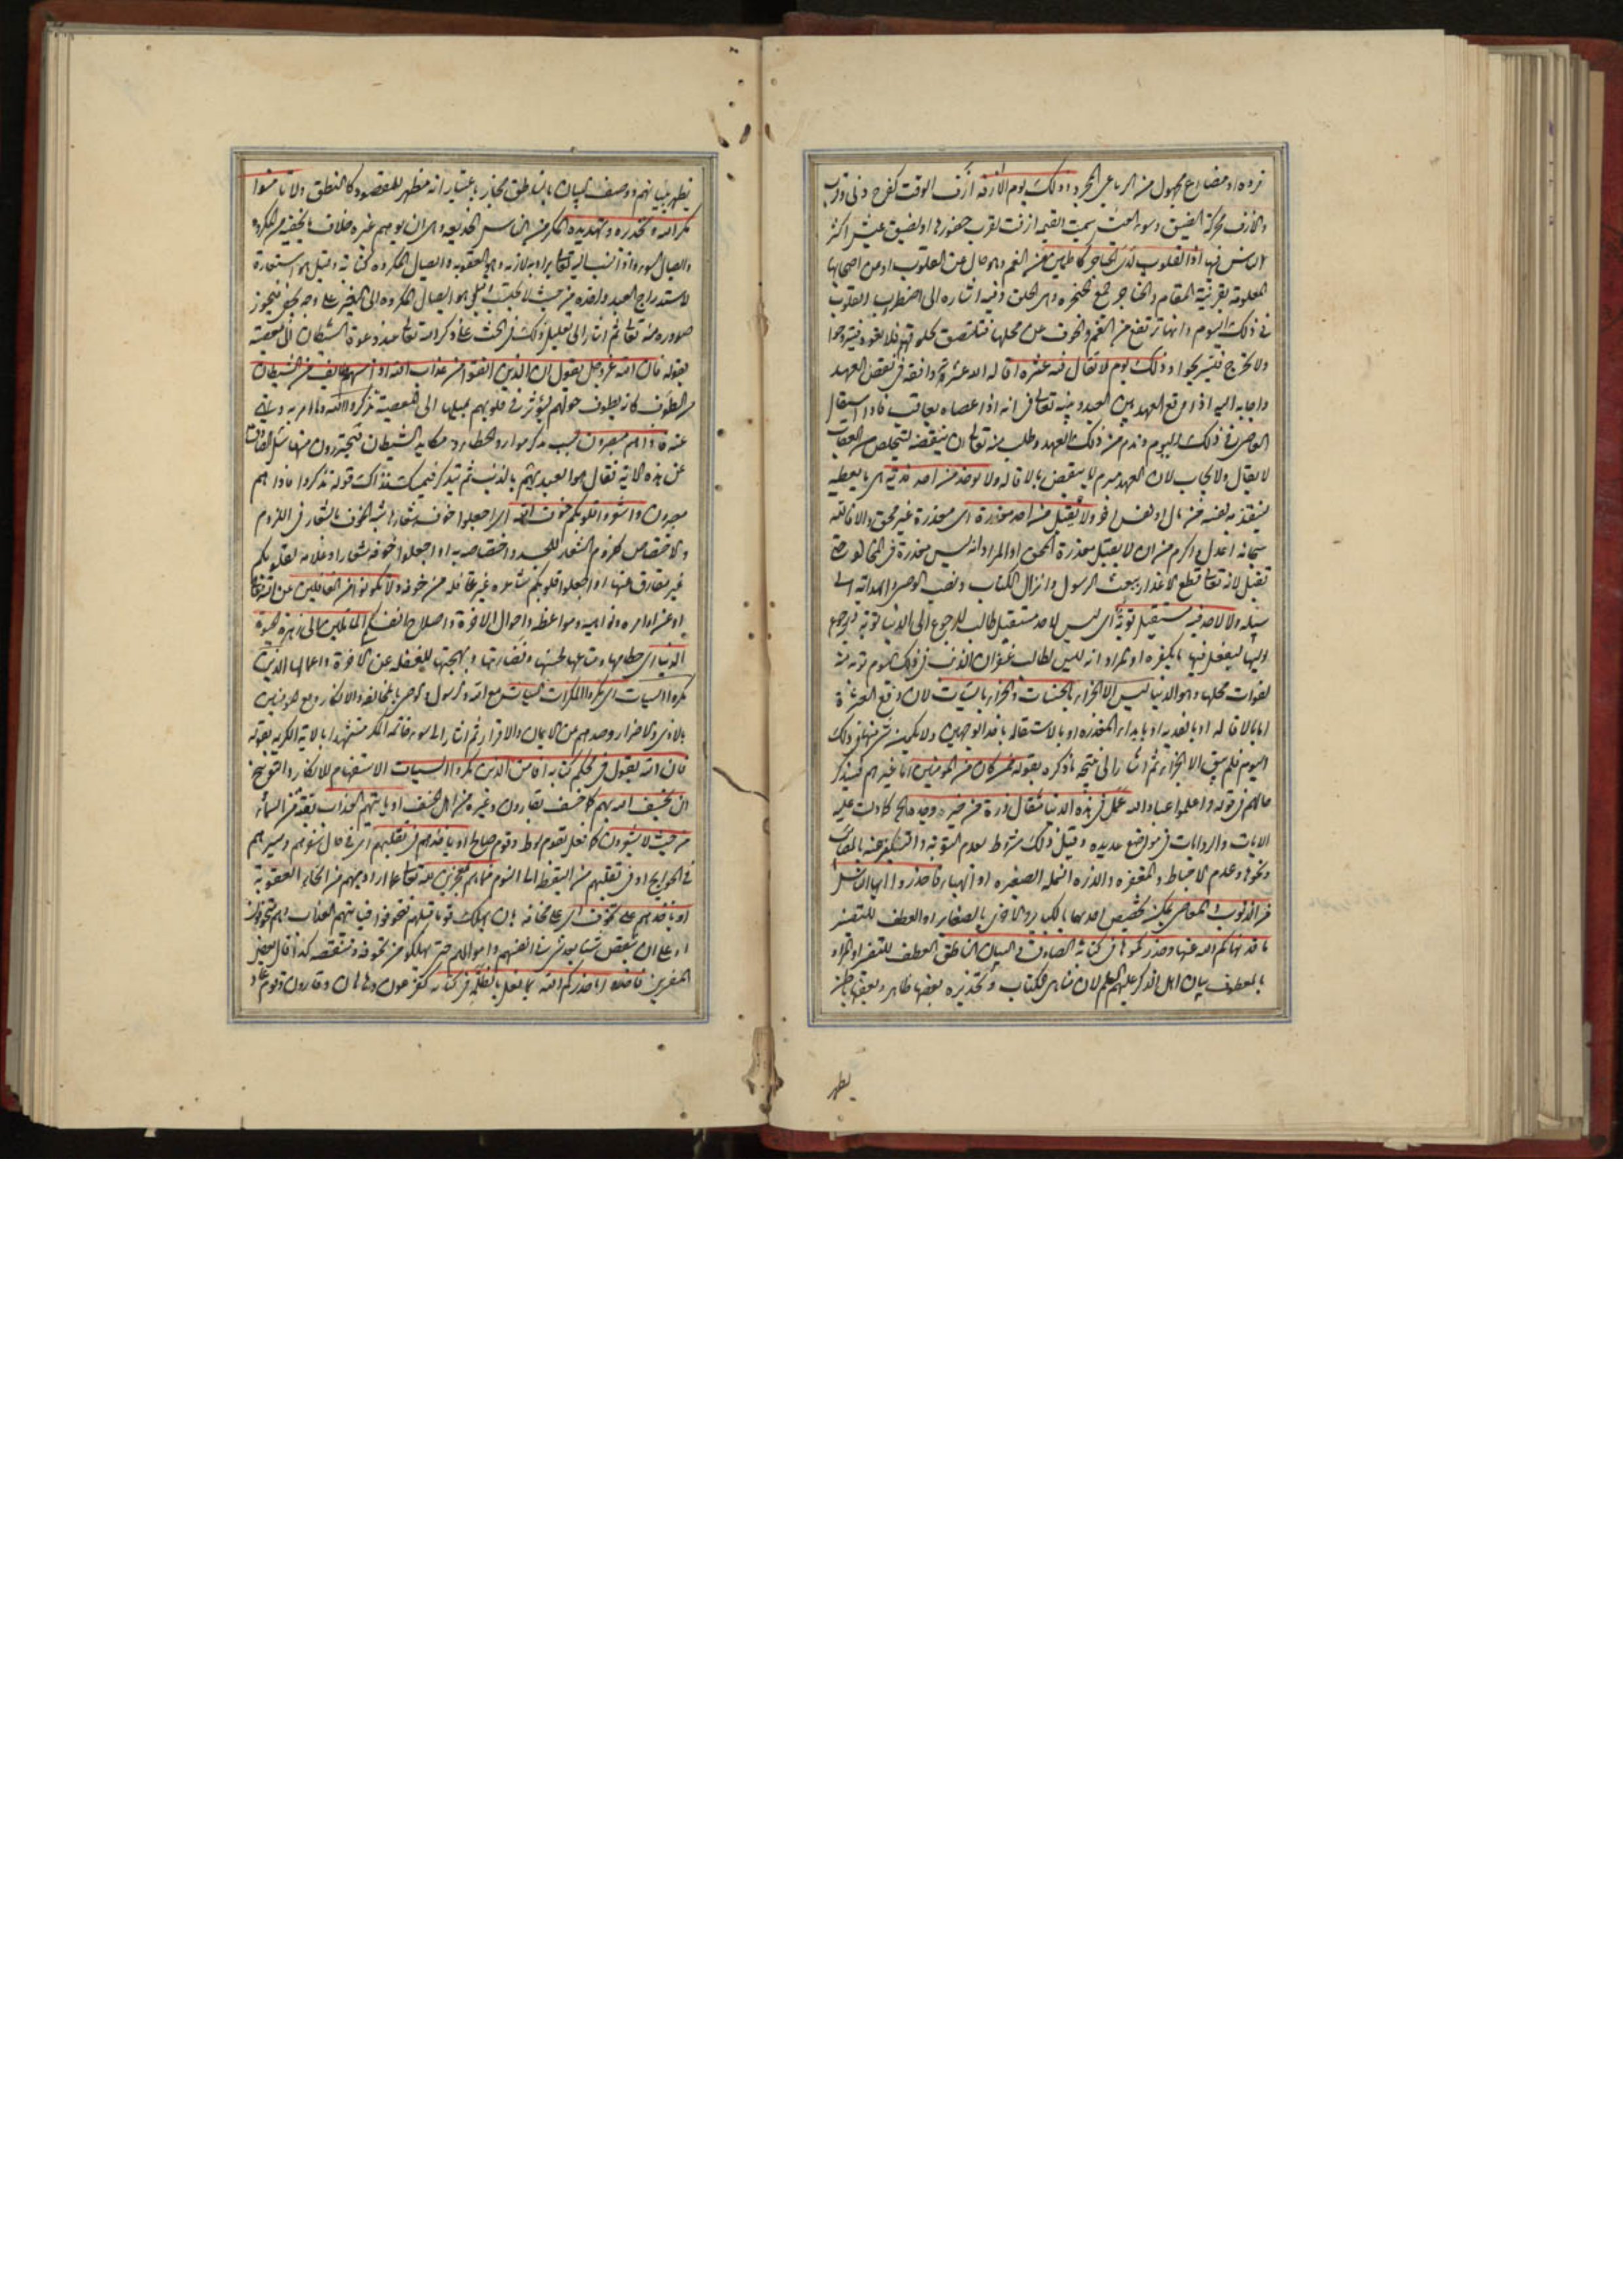 فرده او مضارع مجهول من الرباعى المجرد وذلك يوم الازفة ازف الوقت كفرح دنى وقرب
والازف محركة الضيق وسوء العيش سميت القيمة ازفت لقرب حضورها او لضيق عيش اكثر
الناس فيها اذ القلوب لدى الحناجر كاظمين من الغم وهو حال عن القلوب او من اصحابها
المعلومة بقرينة المقام والحناجر جمع الحنجرة وهى الحلق وفيه اشارة الى اضطراب القلوب
فى ذلك اليوم وانها ترتفع من الغم والخوف عن محلها فتلتصق بحلوقهم فلا يعود فيتروحوا
ولا تخرج فيستريحوا وذلك يوم لا تقال فيه عثرة اقاله الله عثرته وافقه فى نقض العهد
واجابه اليه اذا وقع العهد بين العبد وبينه تعالى فى انه اذا عصاه يعاقب فاذا استقال
العاصى فى ذلك اليوم وندم من ذلك العهد وطلب منه تعالى ان ينقضه لتخلص من العقاب
لا يقال ولا يجاب لان العهد مبرم لا ينتقض بالاقالة ولا يؤخذ من احد فدية اى ما يعطيه
لينقذ به نفسه من مال او نفس اخر ولا يقبل من احد معذرة اى معذرة غير محق والا فالله
سبحانه اعدل واكرم من ان لا يقبل معذرة المحق او المراد انه ليس معذرة فى المخالفة حتى
تقبل لانه تعالى قطع الاعذار ببعث الرسول وانزال الكتاب ونصب الوصى والهداية الى
سبيله ولا لاحد فيه مستقبل توبة اى ليس لاحد مستقبل طالب للرجوع الى الدنيا توبة فيرجع
اليها ليفعل فيها ما يكفره او المراد انه ليس لطالب غفران الذنب فى ذلك اليوم توبة منه
لفوات محلها وهو الدنيا ليس الا الجزاء بالحسنات والجزاء بالسيئات لان رفع العثرة
اما بالاقالة او بالفدية او بابداء المعذرة او بالاستقالة باحد الوجهين ولا يمكن شىء منها فى ذلك
اليوم فلم يبق الا الجزاء ثم اشار الى نتيجة ما ذكره بقوله فمن كان من المؤمنين اما غيرهم فسيذكر
حالهم فى قوله واعلموا عباد الله عمل فى هذه الدنيا مثقال ذرة من خير وجده كما دلت عليه
الايات والروايات فى مواضع عديدة وقيل ذلك مشروط بعدم التوبة والتكفير عنه بالمصائب
ونحوها وعدم الاحباط والمغفرة والذرة النملة الصغيرة او الهباء فاحذروا ايها الناس
من الذنوب والمعاصى يمكن تخصيص احدهما بالكبائر والاخرى بالصغائر او العطف للتفسير
ما قد نهاكم الله عنها وحذركموها فى كتابه الصادق والبيان الناطق العطف للتفسير او المراد
بالمعطوف بيان اهل الذكر عليهم السلم لان مناهى الكتاب وتحذيره بعضها ظاهر وبعضها باطن
يظهر
يظهر ببيانهم ووصف البيان بالناطق مجاز باعتبار انه مظهر للمقصود كالنطق ولا تامنوا
مكر الله وتحذيره وتهديده المكر من الناس الخديعة وهى ان يوهم غيره خلاف ما يخفيه من المكروه
وايصال السوء واذا نسب اليه تعالى يراد به لازمه وهو العقوبة وايصال المكروه كناية وقيل هو استعارة
لاستدراج العبد واخذه من حيث لا يحتسب وقيل هو ايصال المكروه الى الغير على وجه يخفى فيجوز
صدوره منه تعالى ثم اشار الى تعليل ذلك فى الحث على ذكر الله تعالى عند دعوة الشيطان الى معصيته
بقوله فان الله عز وجل يقول ان الذين اتقوا من عذاب الله اذا مسهم طائف من الشيطان
من الطوف كانه يطوف حولهم ليؤثر فى قلوبهم بميلها الى المعصية تذكروا الله وما امر به ونهى
عنه فاذا هم مبصرون بسبب تذكر موارد الخطاء ومكايد الشيطان فيحترزون منها سئل الصادق
عن هذه الاية فقال هو العبد يهم بالذنب ثم يتذكر فيمسك فذلك قوله تذكروا فاذا هم
مبصرون واشعروا قلوبكم خوف الله اى اجعلوا خوف الله شعارا شبه الخوف بالشعار فى اللزوم
والاختصاص كلزوم الشعار للجسد واختصاصه به او اجعلوا خوفه شعارا وعلامة لقلوبكم
غير مفارق عنها او اجعلوا قلوبكم شاعرة غير غافلة من خوفه ولا تكونوا من الغافلين عن الله تعالى
او عن اوامره ونواهيه ومواعظه واحوال الاخرة واصلاح انفسكم المائلين الى زهرة الحيوة
الدنيا اى حطامها ومتاعها لحسنها ونضارتها وبهجتها للغفلة عن الاخرة واعمالها الذين
مكروا السيئات اى مكروا المكرات السيئات مع الله والرسول والوصى بالمخالفة والانكار ومع المؤمنين
بالاذى والاضرار وصدهم عن الايمان والاقرار ثم اشار الى سوء خاتمة المكر مستشهدا بالاية الكريمة بقوله
فان الله يقول فى محكم كتابه افامن الذين مكروا السيئات الاستفهام للانكار والتوبيخ
ان يخسف الله بهم كما خسف بقارون وغيره من اهل الخسف او ياتيهم العذاب بغتة من السماء
من حيث لا يشعرون كما فعل بقوم لوط وقوم صالح او ياخذهم فى تقلبهم اى فى حال شغلهم وسيرهم
فى الحوايج او فى تقلبهم من اليقظة الى النوم فما هم بمعجزين لله تعالى عما اراد بهم من انحاء العقوبة
او ياخذهم على تخوف اى على مخافة بان يهلك قوما قبلهم فتخوفوا فياتيهم العذاب وهم متخوفون
او على ان ينقص شيئا بعد شىء فى انفسهم واموالهم حتى يهلكوا من تخوفه وتنقصه كذا قال بعض
المفسرين فاحذروا ما حذركم الله بما فعل بالظلمة فى كتابه كفرعون وهامان وقارون وقوم عاد